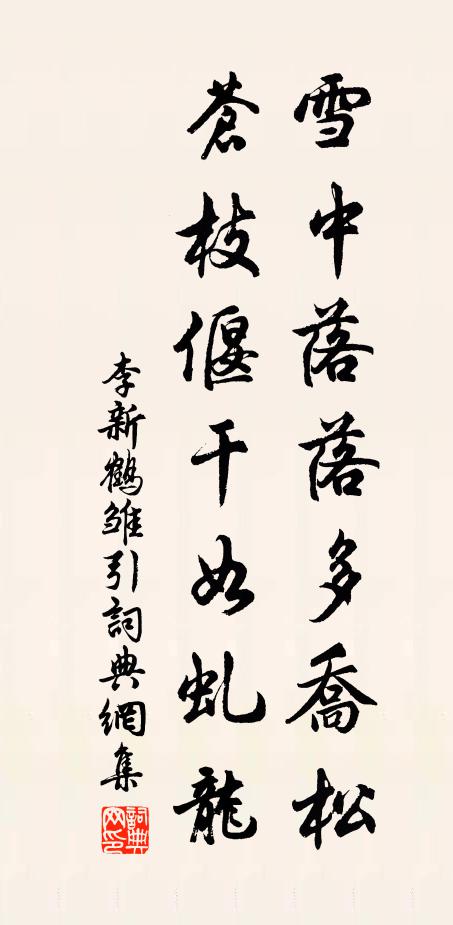 雪中落落多喬松
蒼枝偃干如虬龍
李新鶴雏引詞典網集
詞典网印